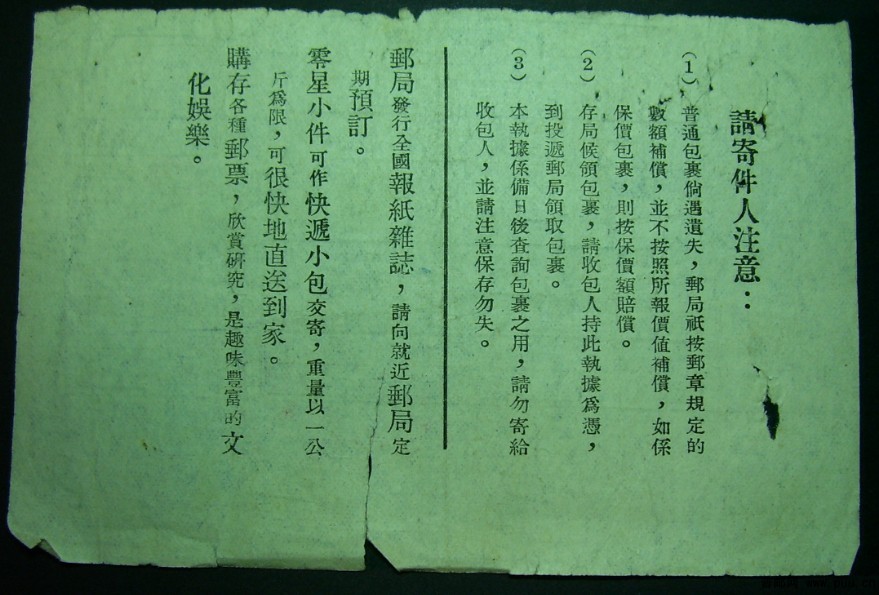 請寄件人注意：
（1）普通包裹倘遇遺失，郵局祇按郵章規定的
數額補償，並不按照所報價值補償，如係
保價包裹，則按保價額賠償。
（2）存局候領包裹，請收包人持此執據爲憑，
到投遞郵局領取包裹。
（3）本執據係備日後查詢包裹之用，請勿寄給
收包人，並請注意保存勿失。
郵局發行全國報紙雜誌，請向就近郵局定
期預訂。
零星小件可作快遞小包交寄，重量以一公
斤爲限，可很快地直送到家。
購存各種郵票，欣賞研究，是趣味豐富的文
化娛樂。